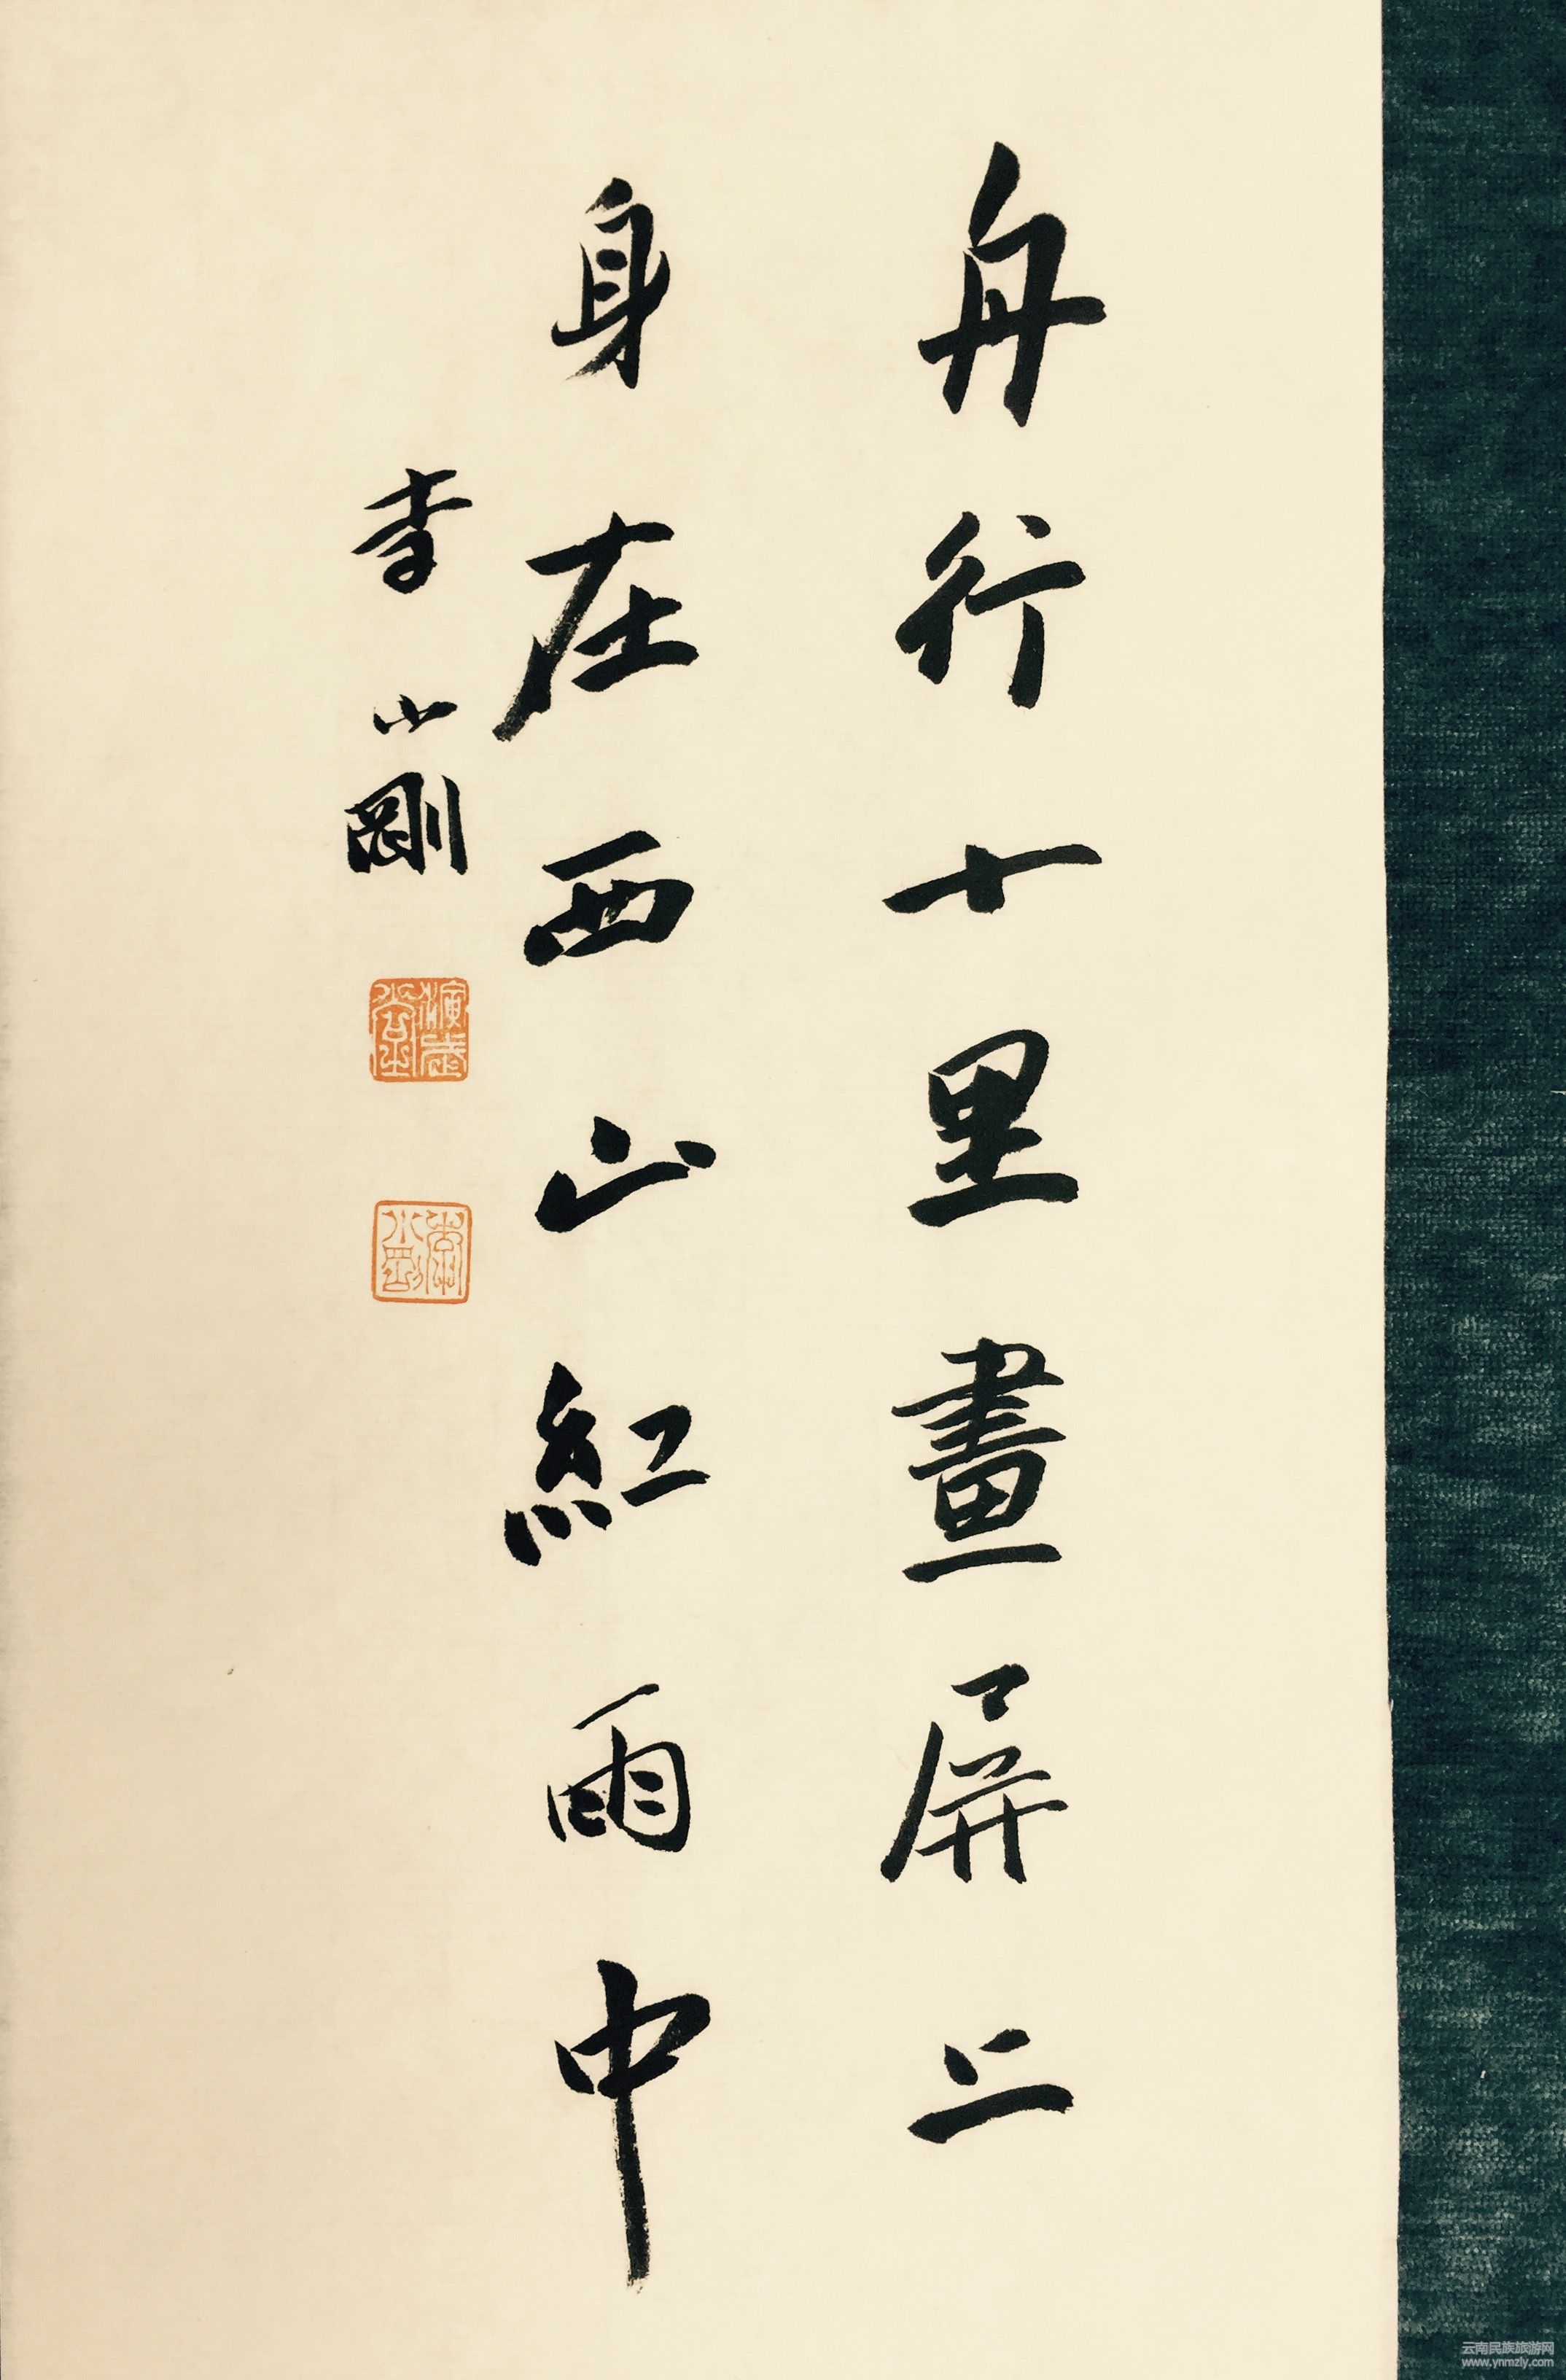 舟行十里畫屏上
身在西山紅雨中
李小剛
云南民族旅游网
www.ynmzly.com